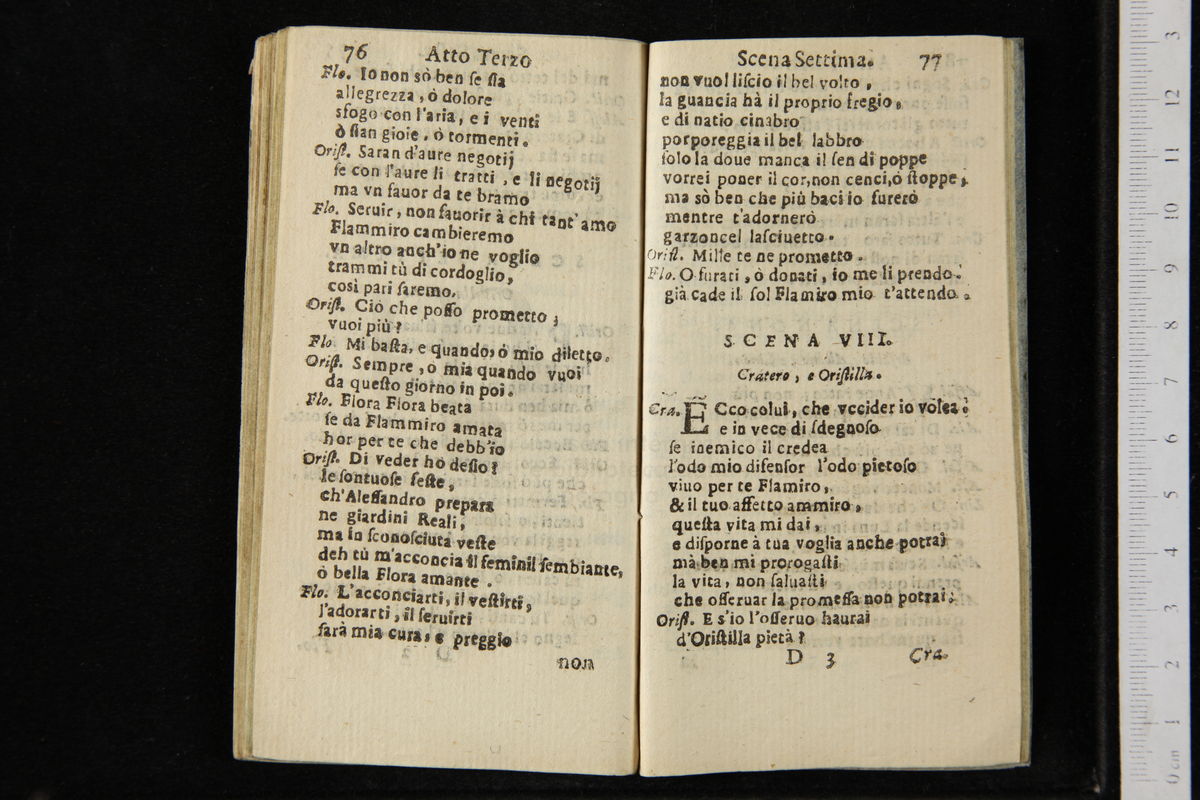 76 Atto Terzo
Flo. Io non sò ben ſe ſia
allegrezza, ò dolore
sfogo con l'aria, e i venti
ò ſian gioie, ò tormenti.
Oriſt. Saran d'aure negotij
ſe con l'aure li tratti, e li negotij
ma vn fauor da te bramo
Flo. Seruir, non fauorir à chi tant'amo
Flammiro cambieremo
vn altro anch'io ne voglio
trammi tù di cordoglio,
così pari ſaremo.
Oriſt. Ciò che poſſo prometto;
vuoi più?
Flo Mi baſta, e quando, ò mio diletto.
Oriſt. Sempre, o mia quando vuoi
da queſto giorno in poi.
Flo. Flora Flora beata
ſe da Flammiro amata
hor per te che debb'io
Oriſt. Di veder hò deſio?
le ſontuoſe feſte,
ch'Aleſſandro prepara
ne giardini Reali,
ma in ſconoſciuta veſte
deh tù m'acconcia il feminil ſembiante,
ò bella Flora amante.
Flo. L'acconciarti, il veſtirti,
l'adorarti, il ſeruirti
ſarà mia cura, e preggio
non
Scena Settima. 77
non vuol liſcio il bel volto,
la guancia hà il proprio fregio,
e di natio cinabro
porporeggia il bel labbro
ſolo la doue manca il ſen di poppe
vorrei poner il cor, non cenci, ò ſtoppe,
ma sò ben che più baci io furerò
mentre t'adornerò
garzoncel laſciuetto.
Oriſt. Mille te ne prometto.
Flo. O furati, ò donati, io me li prendo.
già cade il ſol Flamiro mio t'attendo.
SCENA VIII.
Cratero, e Oriſtilla.
Cra. ECco colui, che vccider io volea:
e in vece di ſdegnoſo
ſe inemico il credea
l'odo mio difenſor l'odo pietoſo
viuo per te Flamiro,
& il tuo affetto ammiro,
queſta vita mi dai,
e diſporne à tua voglia anche potrai
mà ben mi prorogaſti
la vita, non ſaluaſti
che oſſeruar la promeſſa non potrai:
Oriſt. E s'io l'oſſeruo haurai
d'Oriſtilla pietà?
D 3 Cra.
3
12
11
10
9
8
7
6
5
4
3
2
1
0 cm
1
2